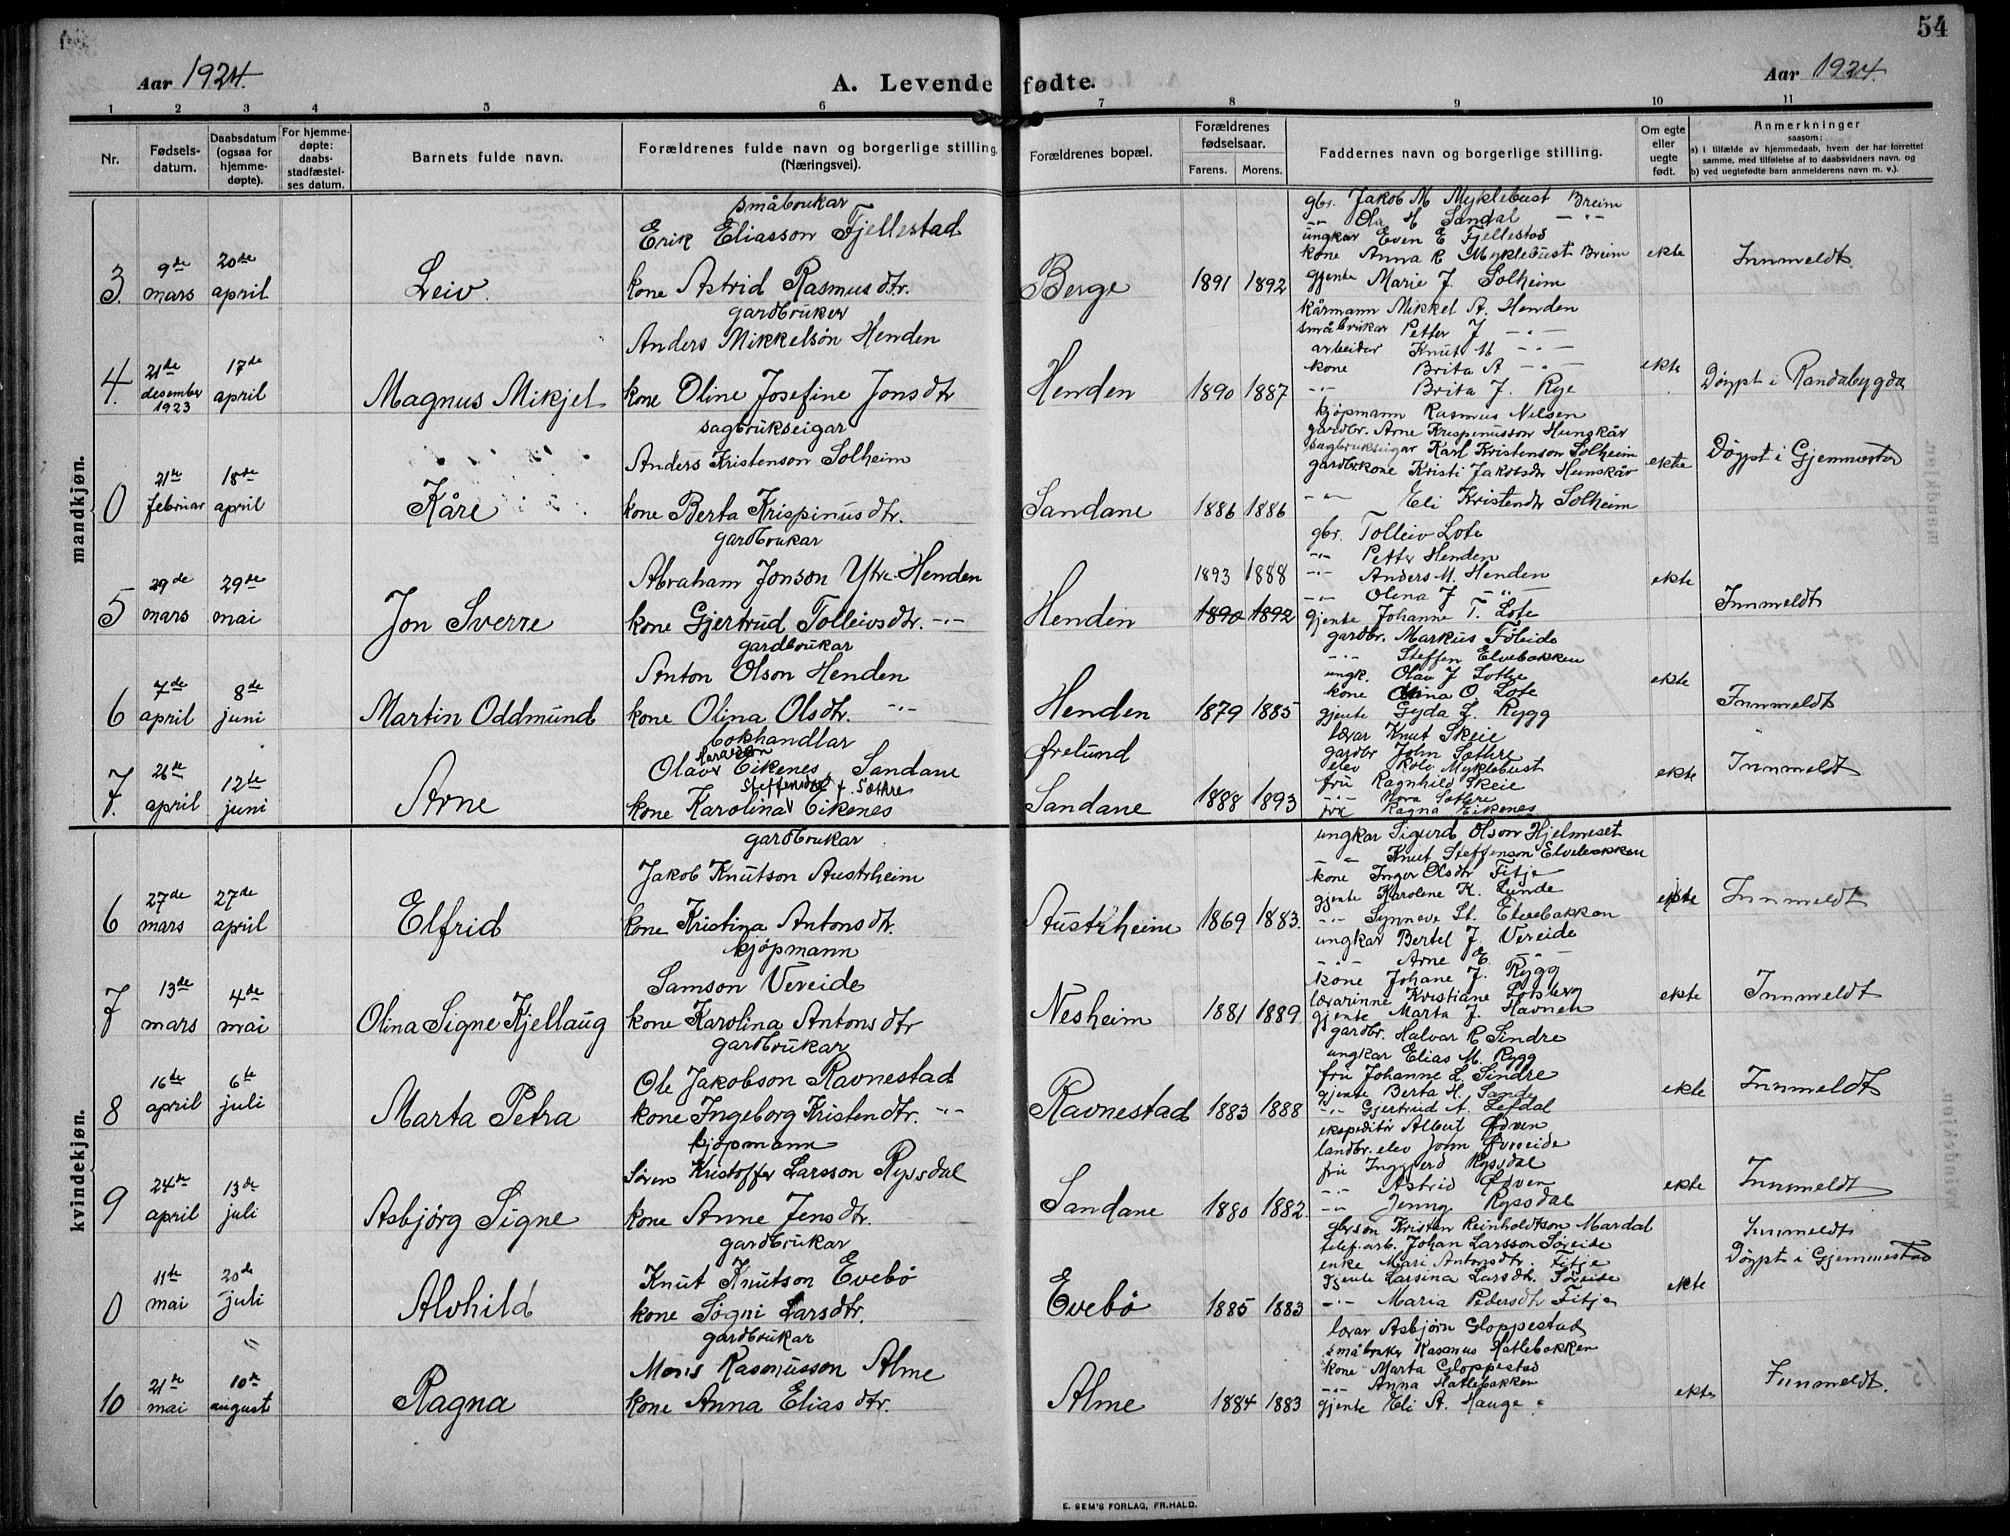 54
Aar 1924.
A. Levende fødte.
Aar 1924.
1 2 3 4 5 6 7 8 9 10 11
Nr.
Fødsels-
datum.
Daabsdatum
(ogsaa for
hjemme-
døpte).
For hjemme-
døpte:
daabs-
stadfæstel-
ses datum.
Barnets fulde navn.
Forældrenes fulde navn og borgerlige stilling
(Næringsvei).
Forældrenes bopæl.
Forældrenes
fødselsaar.
Farens. Morens.
Faddernes navn og borgerlige stilling.
Om egte
eller
uegte
født.
Anmerkninger
saasom:
a) i tilfælde av hjemmedaab, hvem der har forrettet
samme, med tilføielse af to daabsvidners navn, og
b) ved uegtefødte barn anmelderens navn m. v.).
mandkjøn.
3.
9de
mars
20de
april
Leiv.
småbrukar
Erik Eliasson Fjellestad
kone Astrid Rasmusdtr.
Berge
1891 1892
gbr. Jakob M Myklebust Breim
-"- Ola H Sandal -"-
ungkar Even E Fjellestad
kone Anna R Myklebust Breim
gjente Marie J. Solheim
ekte
Innmeldt.
4.
21de
desember
1923
17de
april
Magnus Mikjel
gardbruker
Anders Mikkelson Henden
kone Oline Josefine Jonsdtr
Henden
1890 1887
kårmann Mikkel A. Henden
småbrukar Petter J -"-
arbeider Knut M -"-
kone Brita A -"-
-"- Brita J. Rye
ekte
Døypt i Randabygda
0
21de
februar
18de
april
Kåre
sagbrukseigar
Anders Kristenson Solheim
kone Berta Krispinusdtr.
Sandane
1886 1886
kjøpmann Rasmus Nilsen
gardbr. Arne Krispinusson Hunskår
sagbrukseigar Karl Kristenson Solheim
gardbrkone Kristi Jakobsdtr Hunskår
-"- Eli Kristendtr Solheim
ekte
Døypt i Gjemmestad
5
29de
mars
29de
mai
Jon Sverre
gardbrukar
Abraham Jonson Ytre-Henden
kone Gjertrud Tolleivsdtr. -"-
Henden
1893 1888
1890 1892
gbr. Tolleiv Lote
-"- Petter Henden
-"- Anders M. Henden
-"- Olena J -"-
gjente Johanne T. Lote
ekte
Innmeldt
6
7de
april
8de
juni
Martin Oddmund
gardbrukar
Anton Olson Henden
kone Olina Olsdtr. -"-
Henden
1879 1885
gardbr. Markus Føleide
-"- Steffen Elvebakken
ungk. Olav J Sothre
kone Olina O. Lote
gjente Gyda L. Rygg
ekte
Innmeldt
7.
26de
april
12te
juni
Arne
bokhandlar
Olav Eikenes Sandane
Steffensdtr f. Sothre
kone Karolina Eikenes
Ørelund
Sandane
1888 1893
lærar Knut Skeie
gardbr John Sothre
elev Kolv. Myklebust
fru Ragnhild Skeie
-"- Nora Sothre
frk Ragna Eikenes
ekte
Innmeldt
kvindekjøn.
6
27de
mars
27de
april
Elfrid
gardbrukar
Jakob Knutson Austrheim
kone Kristina Antonsdtr.
Austrheim
1869 1883.
ungkar Sigurd Olson Hjelmeset
-"- Knut Steffenson Elvebakken
kone Inger Olsdtr Fitje
gjente Karolene K. Lunde
-"- Synneve St. Elvebakken
ekte
Innmeldt
7
13de
mars
4de
mai
Olina Signe Kjellaug
kjøpmann
Samson Vereide
kone Karolina Antonsdtr
Nesheim
1881 1889
ungkar Bertel J. Vereide
-"- Arne E. -"-
kone Johane J. Rygg
lærarinne Kristiane Lotsberg
gjente Marta J. Havneh
ekte
Innmeldt
8
16de
april
6te
juli
Marta Petra
gardbrukar
Ole Jakobson Ravnestad
kone Ingeborg Kristendtr. -"-
Ravnestad
1883 1888
gardbr. Halvar R Sindre
ungkar Elias M. Rygg
fru Johanne L. Sindre
gjente Berta H. Sande
-"- Gjertrud A. Lefdal
ekte
Innmeldt
9
24de
april
13de
juli
Asbjørg Signe
kjøpmann
Søren Kristoffer Larsson Ryssdal
kone Anne Jensdtr.
Sandane
1880 1882.
ekspeditør Albert Ødven
landbr. elev Jorm Øvreide
fru Inggjerd Ryssdal
-"- Astrid Ødven
-"- Jenny Ryssdal
ekte
Innmeldt
0
11te
mai
20de
juli
Alvhild
gardbrukar
Knut Knutson Evebø
kone Søgni Larsdtr.
Evebø
1885 1883
gbrson Kristen Reinholdtson Mardal
telef.arb. Johan Larsson Søreide
enke Mari Antonsdtr. Fitje
gjente Larsina Larsdtr. Søreide
-"- Maria Pedersdtr Fitje
ekte
Innmeldt
Døypt i Gjemmestad
10
21de
mai
10de
august
Ragna
gardbrukar
Mons Rasmusson Alme
kone Anna Eliasdtr.
Alme
1884 1883
lærar Asbjørn Gloppestad
småbruker Rasmus Hatlebakken
kone Marta Gloppestad
-"- Anna Hatlebakken
gjente Eli A. Hauge
ekte
Innmeldt.
E. SEM'S FORLAG, FR.HALD.